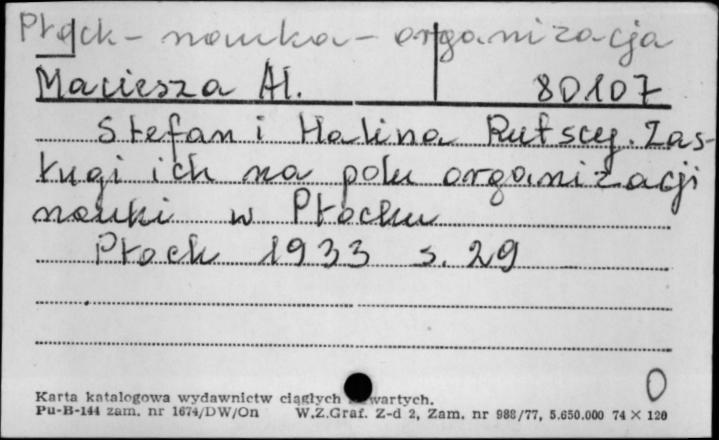 Płock - nauka - organizacja
Maciesza Al. 80107
Stefan i Halina Rutscy. Zas-
ługi ich na polu organizacji
nauki w Płocku
Płock 1933 s. 29
0
Karta katalogowa wydawnictw ciągłych zwartych.
Pu-B-144 zam. nr 1674/DW/On W.Z.Graf. Z-d 2, Zam. nr 988/77, 5.650.000 74 × 120